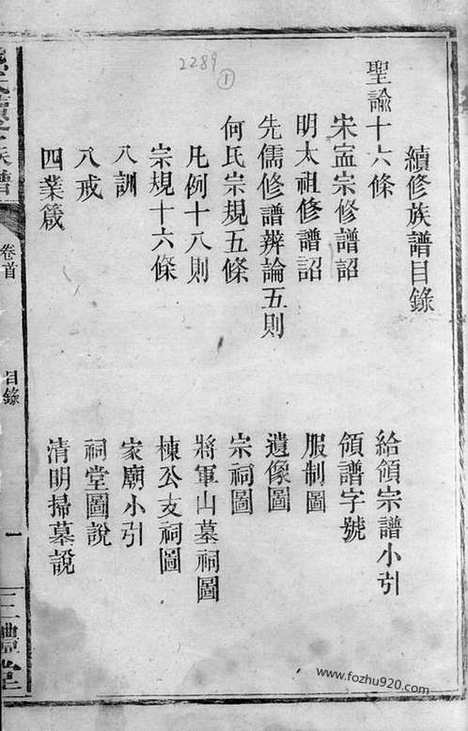 2289
1
續修族譜目錄
聖諭十六條
給領宗譜小引
宋寍宗修譜詔
領譜字號
明太祖修譜詔
服制圖
先儒修譜辨論五則
遺像圖
何氏宗規五條
宗祠圖
凡例十八則
將軍山墓祠圖
宗規十六條
棟公支祠圖
八訓
家廟小引
八戒
祠堂圖說
四業箴
清明掃墓說
卷首
目錄
一
www.fozhu920.com